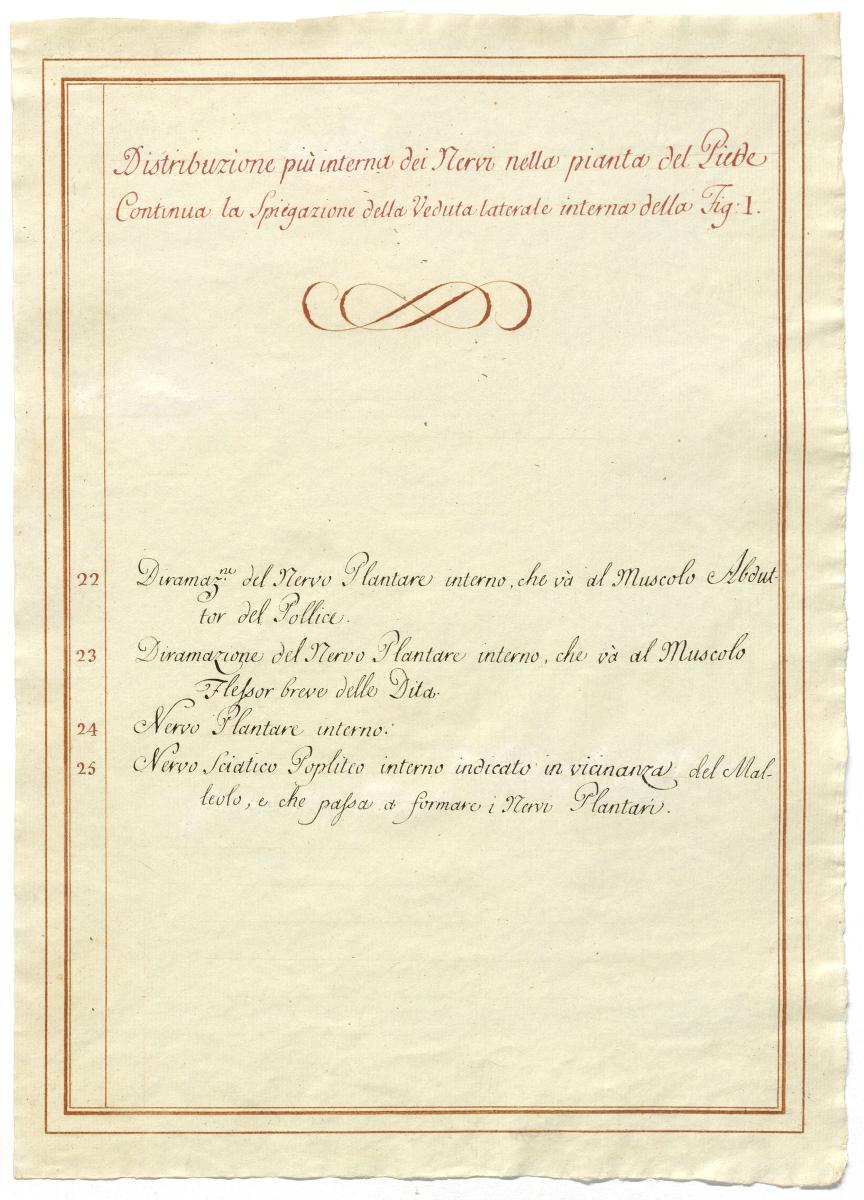 Distribuzione più interna dei Nervi nella pianta del Piede
Continua la Spiegazione della Veduta laterale interna della Fig: 1.
22 Diramaz.ne del Nervo Plantare interno, che và al Muscolo Abdut-
tor del Pollice.
23 Diramazione del Nervo Plantare interno, che và al Muscolo
Flessor breve delle Dita.
24 Nervo Plantare interno.
25 Nervo Sciatico Popliteo interno indicato in vicinanza del Mal-
leolo, e che passa a formare i Nervi Plantari.